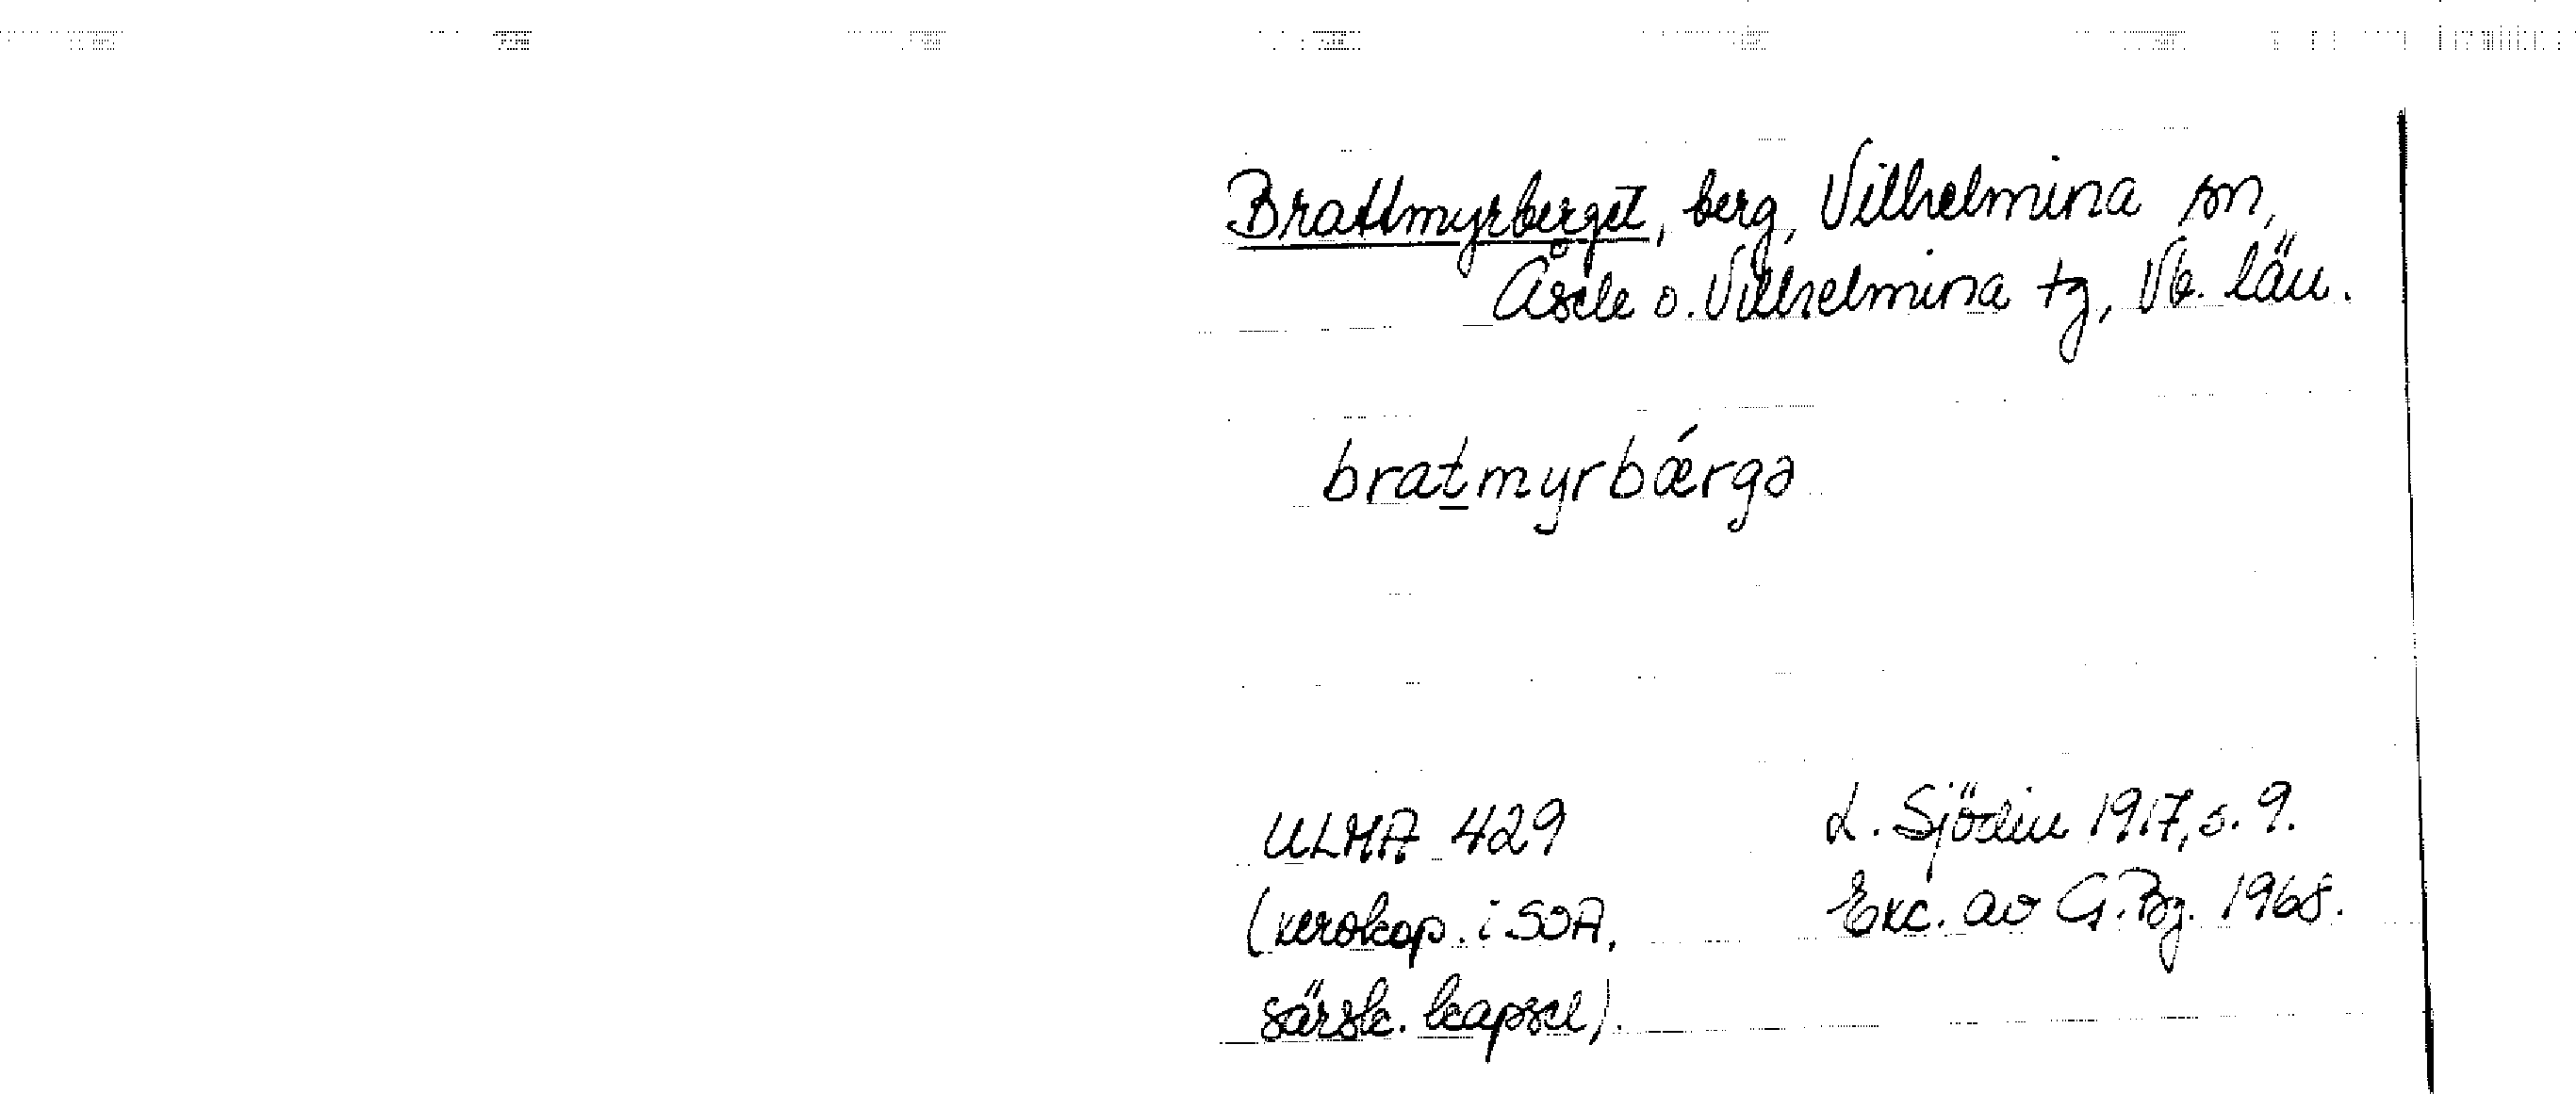 Brattmyrberget, berg, Vilhelmina sn,
Åsele o. Vilhelmina tg, Vb. län.
bratmyrbǽrgə
ULMA 429
(xerokop. i SOA,
särsk. kapsel).
L. Sjödin 1917, s. 9.
Exc. av G. Bg. 1968.